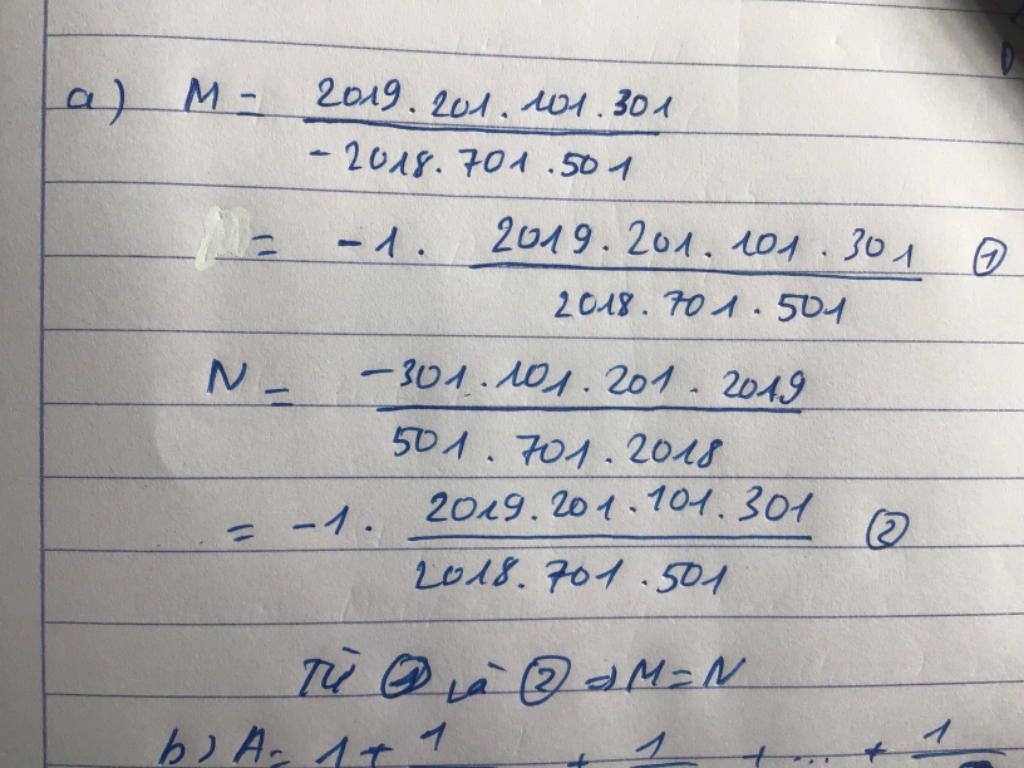 a) M = 2019.201.101.301
-2018.701.501
= -1. 2019.201.101.301 ①
2018.701.501
N = -301.101.201.2019
501.701.2018
= -1. 2019.201.101.301 ②
2018.701.501
Từ ① và ② => M = N
b) A = 1 + 1 + 1 + ... + 1